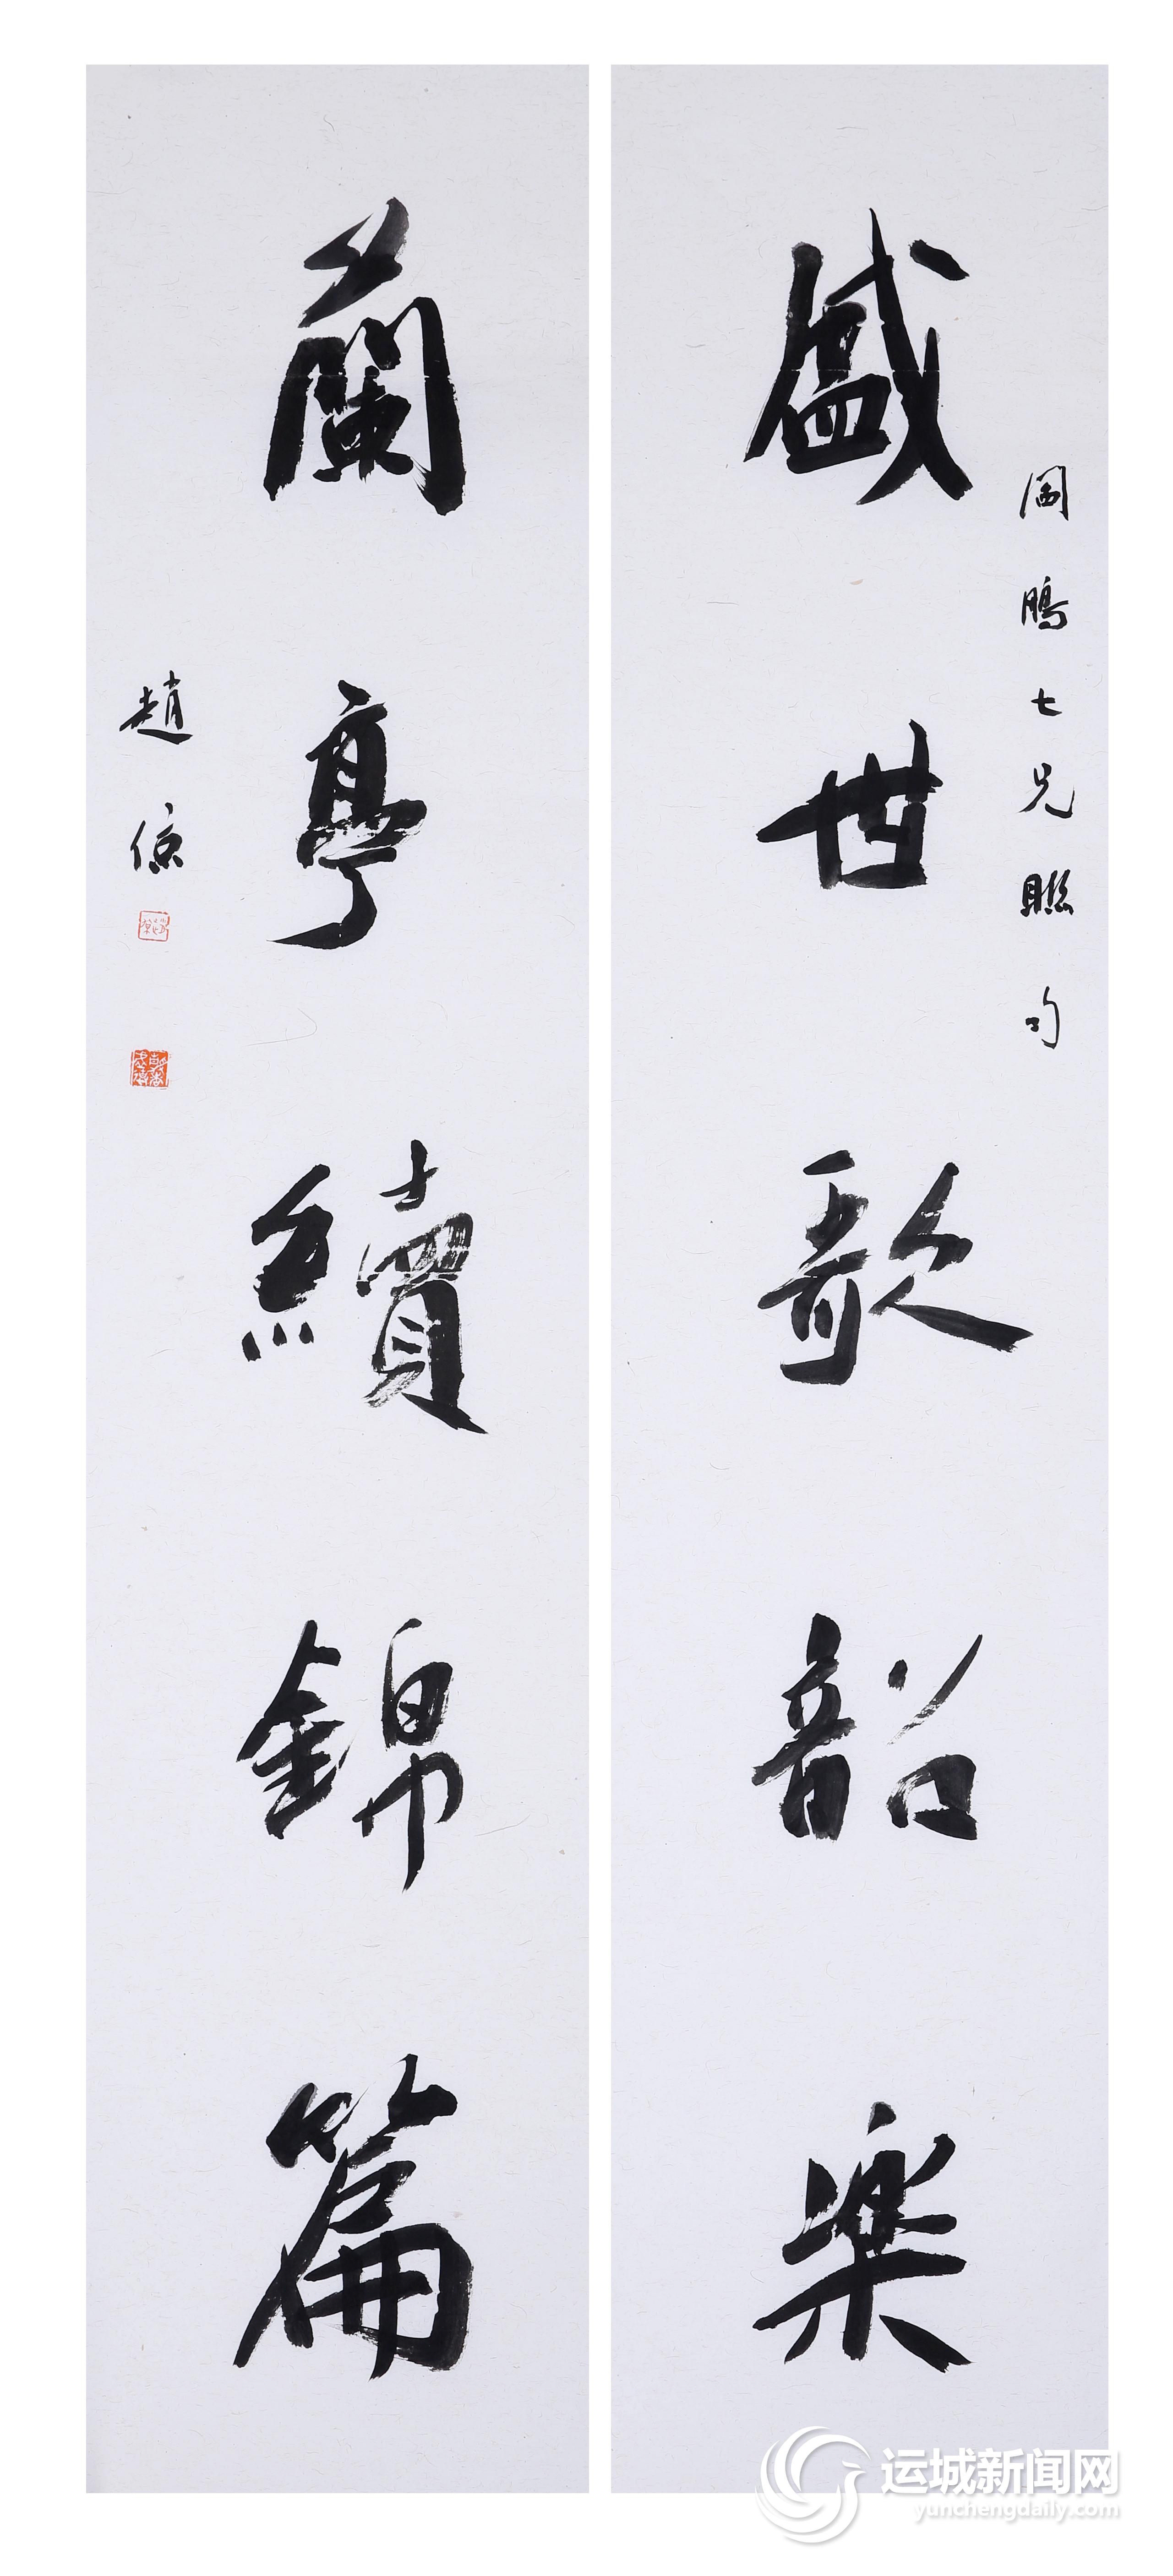 盛世歌韶樂
鵬七兄聯句
蘭亭續錦篇
趙
运城新闻网
yunchengdaily.com